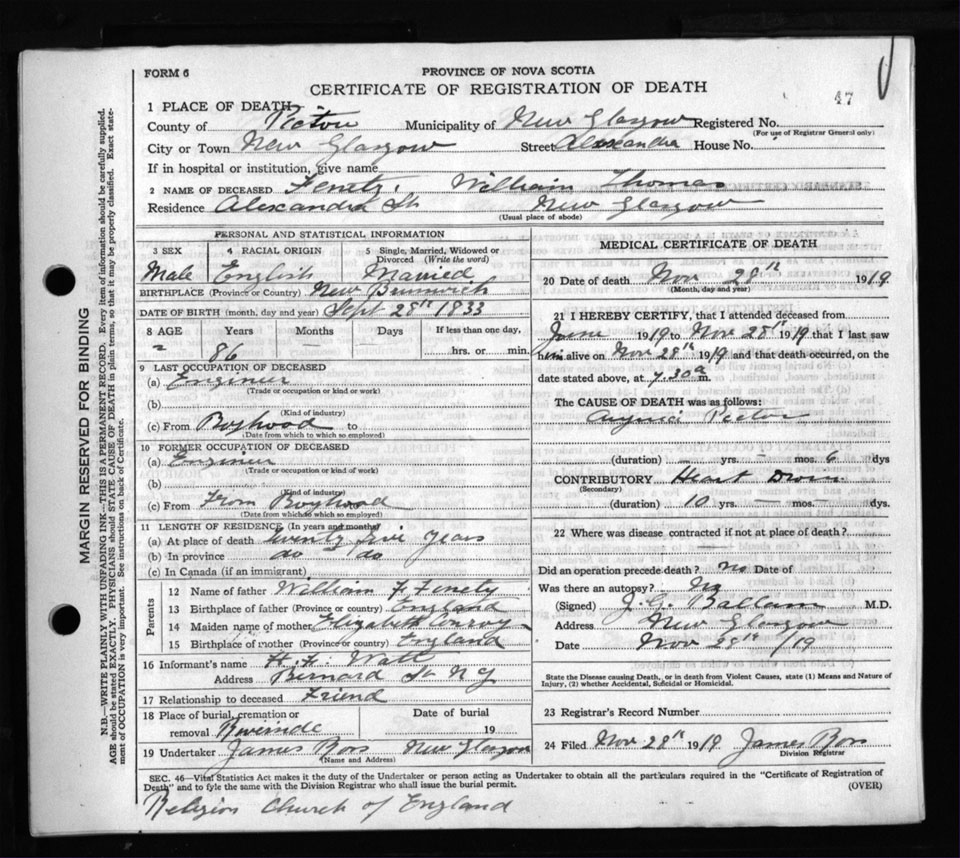 FORM 6
PROVINCE OF NOVA SCOTIA
CERTIFICATE OF REGISTRATION OF DEATH
47
1 PLACE OF DEATH
County of Pictou Municipality of New Glasgow Registered No.
(For use of Registrar General only)
City or Town New Glasgow Street Alexandra House No.
If in hospital or institution, give name
2 NAME OF DECEASED Fenety, William Thomas
Residence Alexandra St. New Glasgow
(Usual place of abode)
PERSONAL AND STATISTICAL INFORMATION
3 SEX 4 RACIAL ORIGIN 5 Single, Married, Widowed or Divorced (Write the word)
Male English Married
BIRTHPLACE (Province or Country) New Brunswick
DATE OF BIRTH (month, day and year) Sept 28th 1833
8 AGE Years Months Days If less than one day,
86 — — hrs. or min.
9 LAST OCCUPATION OF DECEASED
(a) Enginer
(Trade or occupation or kind or work)
(b)
(Kind of industry)
(c) From Boyhood to
(Date from which to which so employed)
10 FORMER OCCUPATION OF DECEASED
(a) Enginer
(Trade or occupation or kind of work)
(b)
(Kind of industry)
(c) From From Boyhood
(Date from which to which so employed)
11 LENGTH OF RESIDENCE (In years and months)
(a) At place of death twenty five years
(b) In province do do
(c) In Canada (if an immigrant)
Parents
12 Name of father William F Fenety
13 Birthplace of father (Province or country) England
14 Maiden name of mother Elizabeth
15 Birthplace of mother (Province or country) England
16 Informant's name Watt
Address Bernard St N G
17 Relationship to deceased Friend
18 Place of burial, cremation or removal Riverside
Date of burial 19
19 Undertaker James Ross New Glasgow
(Name and Address)
MEDICAL CERTIFICATE OF DEATH
20 Date of death Nov 28th 1919
(Month, day and year)
21 I HEREBY CERTIFY, that I attended deceased from
June 1919 to Nov 28th 1919 that I last saw
him alive on Nov 28th 1919 and that death occurred, on the
date stated above, at 7.30 a m.
The CAUSE OF DEATH was as follows:
Angina Pector
(duration) — yrs. — mos. 6 dys
CONTRIBUTORY Heart
(Secondary)
(duration) 10 yrs. — mos. — dys
22 Where was disease contracted if not at place of death?
Did an operation precede death? no Date of
Was there an autopsy? No
(Signed) J. G. Ballam M.D.
Address New Glasgow
Date Nov 28th /19
State the Disease causing Death, or in death from Violent Causes, state (1) Means and Nature of
Injury, (2) whether Accidental, Suicidal or Homicidal.
23 Registrar's Record Number
24 Filed Nov 28th 1919 James Ross
Division Registrar
SEC. 46—Vital Statistics Act makes it the duty of the Undertaker or person acting as Undertaker to obtain all the particulars required in the "Certificate of Registration of
Death" and to fyle the same with the Division Registrar who shall issue the burial permit. (OVER)
Religion Church of England
MARGIN RESERVED FOR BINDING
N.B.—WRITE PLAINLY WITH UNFADING INK—THIS IS A PERMANENT RECORD. Every item of information should be carefully supplied.
AGE should be stated EXACTLY. PHYSICIANS should STATE CAUSE OF DEATH in plain terms, so that it may be properly classified. Exact state-
ment of OCCUPATION is very important. See instructions on back of Certificate.